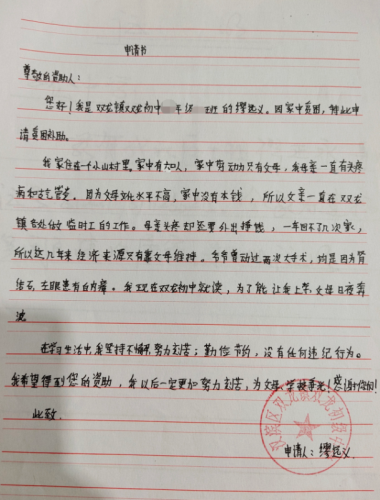 申请书
尊敬的资助人：
您好！我是双龙镇双龙初中 年级 班的缪远义。因家中贫困，特此申
请贫困补助。
我家住在一个小山村里。家中有六口人，家中劳动力只有父母，我母亲一直有头疼
病和支气管炎。因为父母文化水平不高，家中没有本钱，所以父亲一直在双龙
镇各处做临时工的工作。母亲头疼却还要外出挣钱，一年回不了几次家，
所以这几年来经济来源只有靠父母维持。爷爷曾动过两次大手术，均是因为肾
结石，左眼患有白内障。我现在双龙初中就读，为了能让我上学，父母日夜奔
波
在学习生活中，我坚持不懈，努力刻苦；勤俭节约，没有任何违纪行为。
我希望得到您的资助，我以后一定更加努力刻苦，为父母 争光！感谢你们！
此致
申请人：缪远义